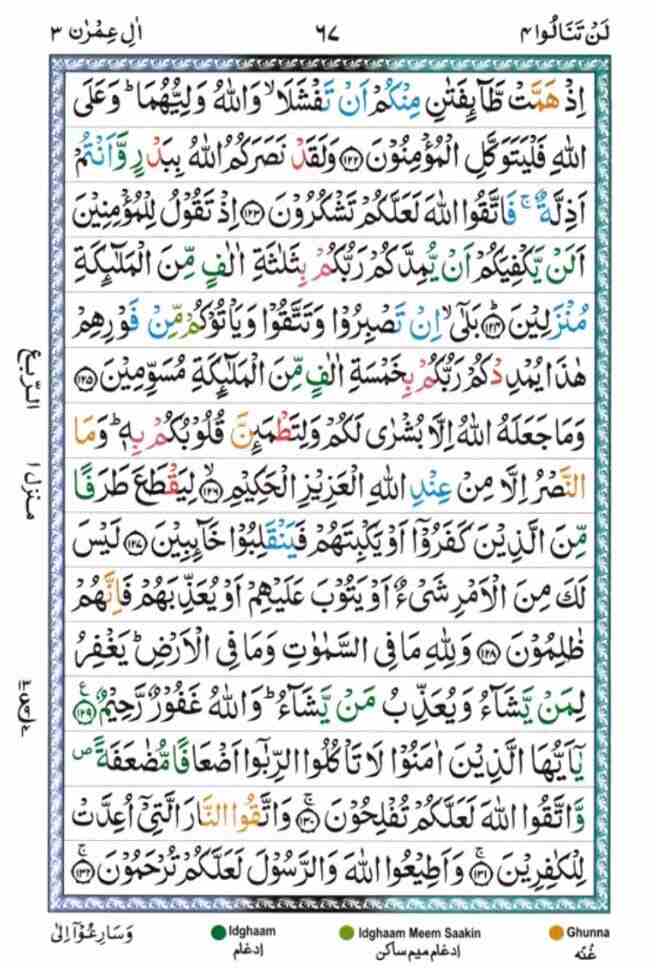 لَنْ تَنَالُوا ۴ ٦٧ اٰلِ عِمْرٰن ٣
اِذْ هَمَّتْ طَّآئِفَتٰنِ مِنْكُمْ اَنْ تَفْشَلَا ۙ وَاللّٰهُ وَلِيُّهُمَا ؕ وَعَلَى
اللّٰهِ فَلْيَتَوَكَّلِ الْمُؤْمِنُوْنَ ﴿١٢٢﴾ وَلَقَدْ نَصَرَكُمُ اللّٰهُ بِبَدْرٍ وَّاَنْتُمْ
اَذِلَّةٌ ۚ فَاتَّقُوا اللّٰهَ لَعَلَّكُمْ تَشْكُرُوْنَ ﴿١٢٣﴾ اِذْ تَقُوْلُ لِلْمُؤْمِنِيْنَ
اَلَنْ يَّكْفِيَكُمْ اَنْ يُّمِدَّكُمْ رَبُّكُمْ بِثَلٰثَةِ اٰلٰفٍ مِّنَ الْمَلٰٓئِكَةِ
مُنْزَلِيْنَ ؕ ﴿١٢٤﴾ بَلٰٓى ۙ اِنْ تَصْبِرُوْا وَتَتَّقُوْا وَيَاْتُوْكُمْ مِّنْ فَوْرِهِمْ
هٰذَا يُمْدِدْكُمْ رَبُّكُمْ بِخَمْسَةِ اٰلٰفٍ مِّنَ الْمَلٰٓئِكَةِ مُسَوِّمِيْنَ ﴿١٢٥﴾
وَمَا جَعَلَهُ اللّٰهُ اِلَّا بُشْرٰى لَكُمْ وَلِتَطْمَئِنَّ قُلُوْبُكُمْ بِهٖ ؕ وَمَا
النَّصْرُ اِلَّا مِنْ عِنْدِ اللّٰهِ الْعَزِيْزِ الْحَكِيْمِ ۙ ﴿١٢٦﴾ لِيَقْطَعَ طَرَفًا
مِّنَ الَّذِيْنَ كَفَرُوْٓا اَوْ يَكْبِتَهُمْ فَيَنْقَلِبُوْا خَآئِبِيْنَ ﴿١٢٧﴾ لَيْسَ
لَكَ مِنَ الْاَمْرِ شَىْءٌ اَوْ يَتُوْبَ عَلَيْهِمْ اَوْ يُعَذِّبَهُمْ فَاِنَّهُمْ
ظٰلِمُوْنَ ﴿١٢٨﴾ وَلِلّٰهِ مَا فِى السَّمٰوٰتِ وَمَا فِى الْاَرْضِ ؕ يَغْفِرُ
لِمَنْ يَّشَآءُ وَيُعَذِّبُ مَنْ يَّشَآءُ ؕ وَاللّٰهُ غَفُوْرٌ رَّحِيْمٌ ﴿١٢٩﴾ ع
يٰٓاَيُّهَا الَّذِيْنَ اٰمَنُوْا لَا تَاْكُلُوا الرِّبٰٓوا اَضْعَافًا مُّضٰعَفَةً ص
وَّاتَّقُوا اللّٰهَ لَعَلَّكُمْ تُفْلِحُوْنَ ۚ ﴿١٣٠﴾ وَاتَّقُوا النَّارَ الَّتِىْٓ اُعِدَّتْ
لِلْكٰفِرِيْنَ ۚ ﴿١٣١﴾ وَاَطِيْعُوا اللّٰهَ وَالرَّسُوْلَ لَعَلَّكُمْ تُرْحَمُوْنَ ۚ ﴿١٣٢﴾
الرّبع
منزل ١
Ghunna Idghaam Meem Saakin Idghaam وَسَارِعُوْٓا اِلٰى
غُنّه ادغام میم ساکن ادغام